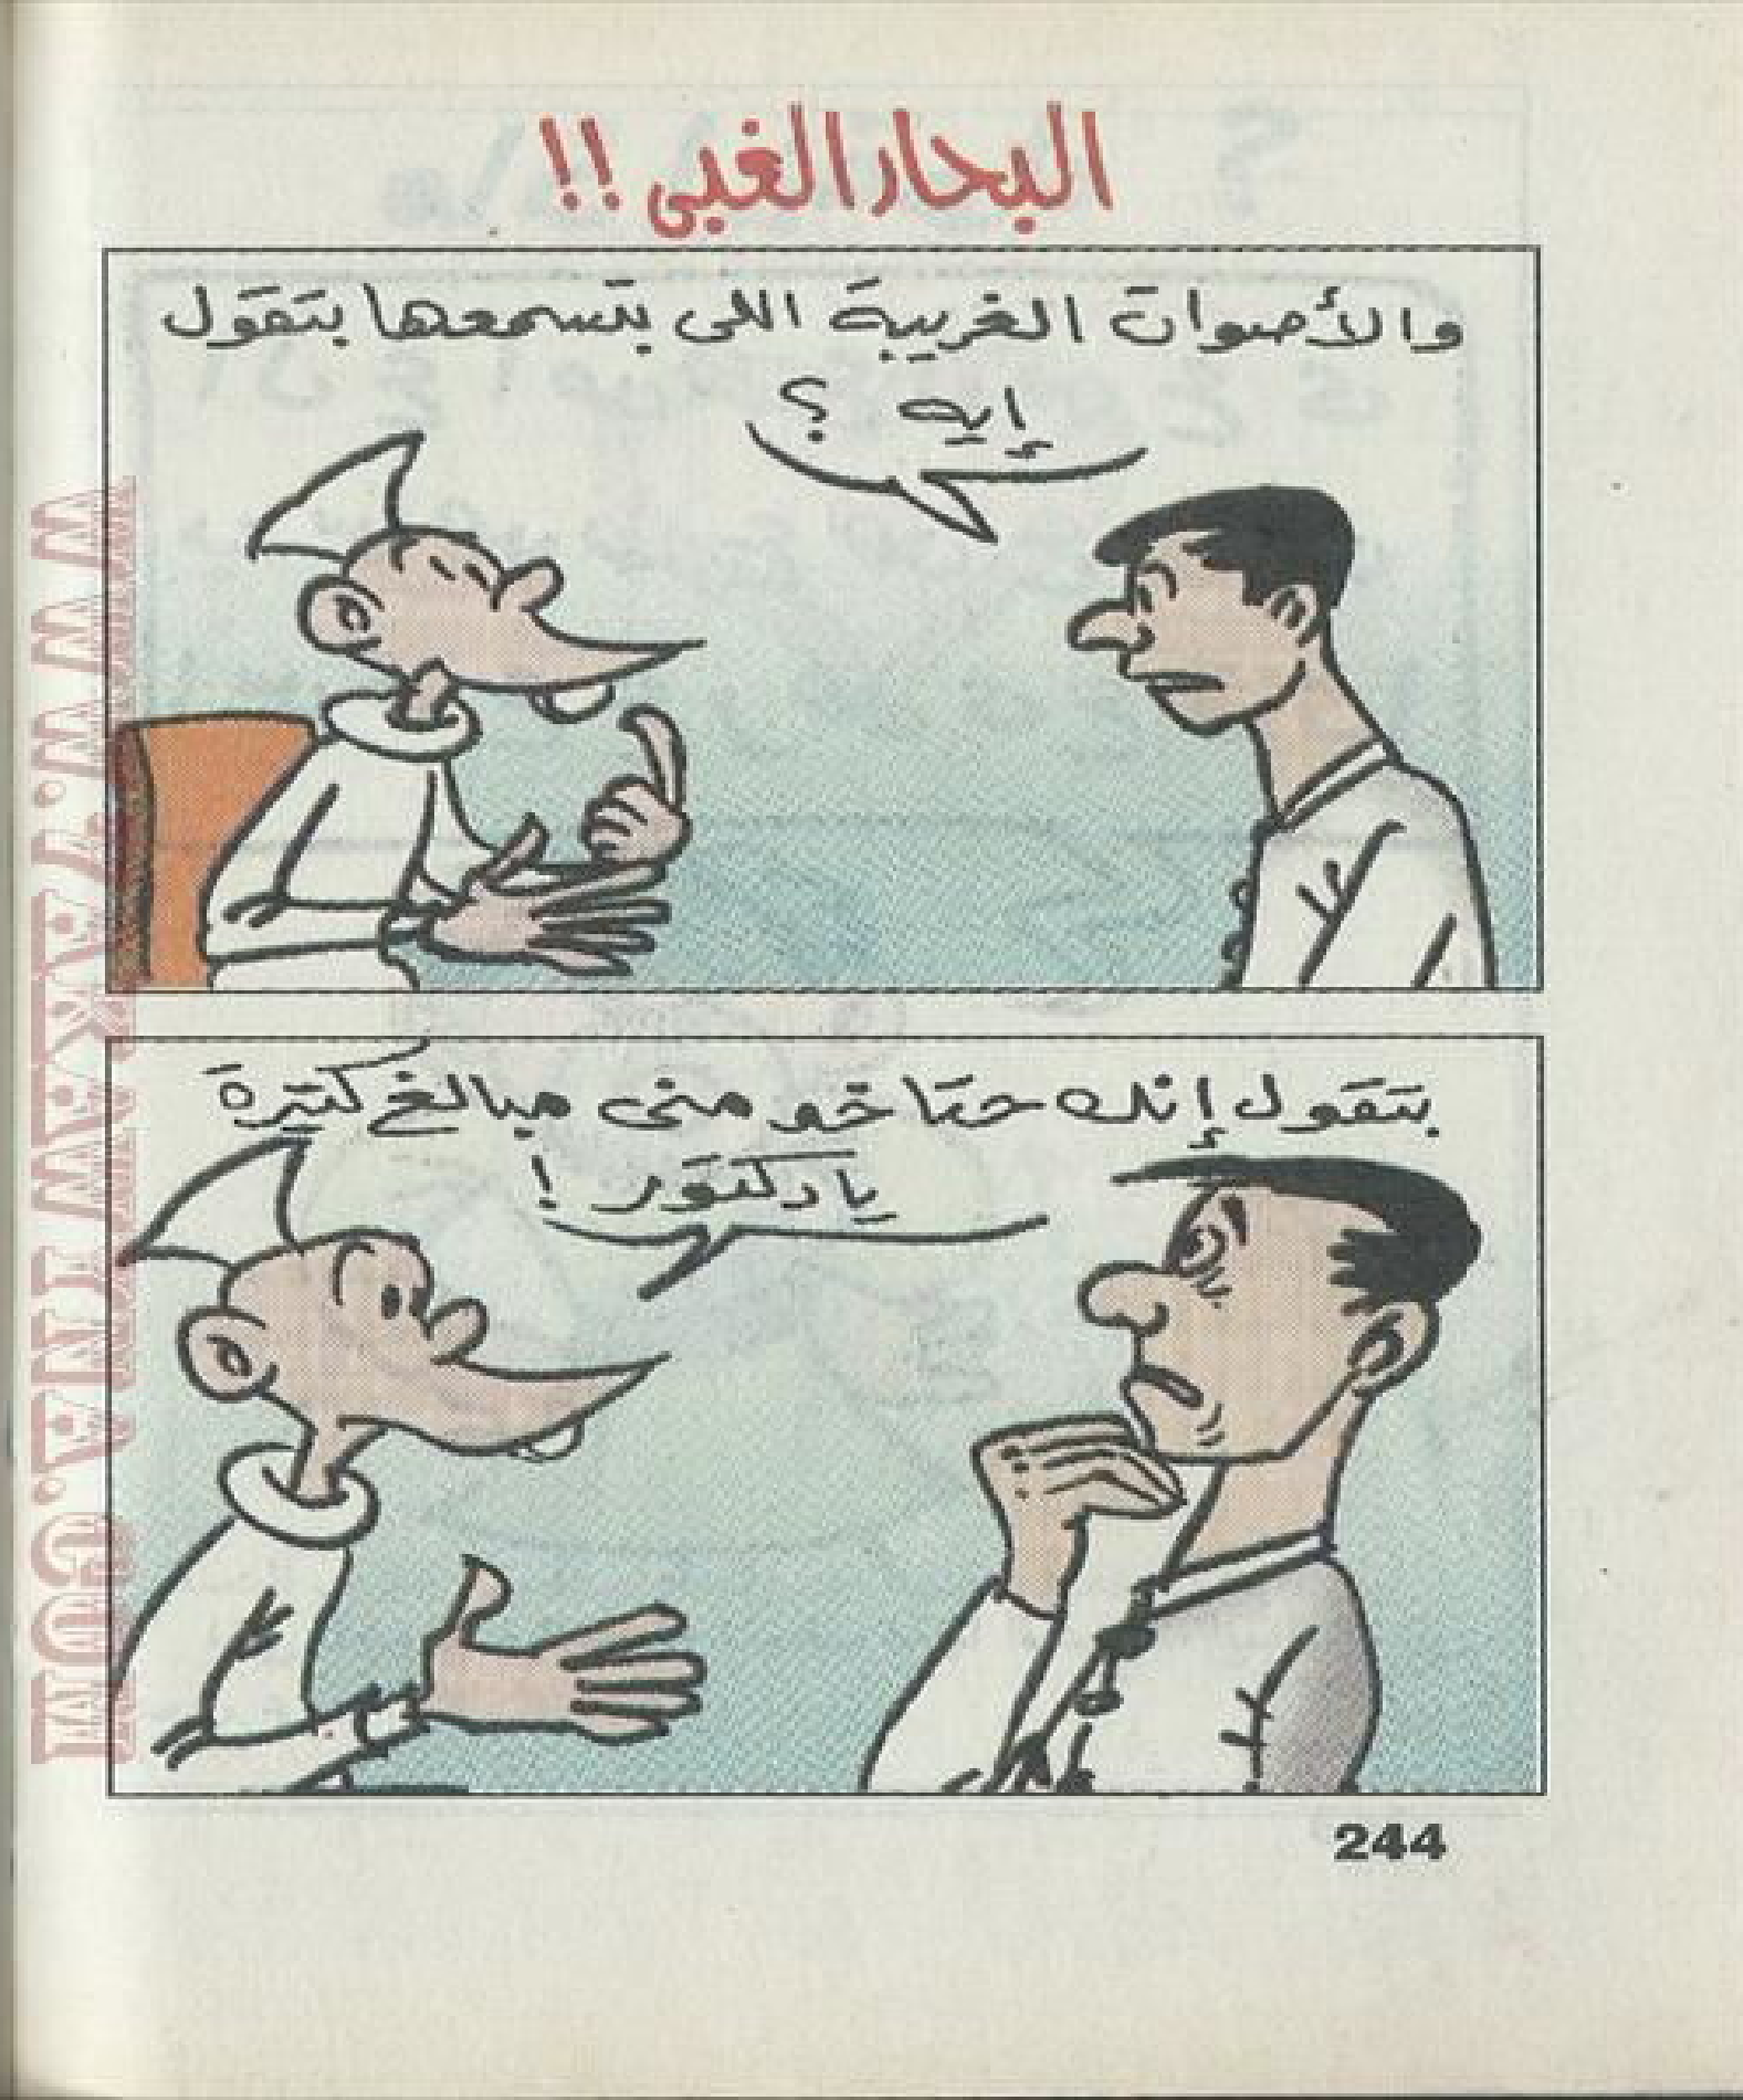 البحار الغبى !!
والأصوات الغريبة اللى بتسمعها بتقول
إيه ؟
بتقول إنك حتاخد منى مبالغ كتيرة
يا دكتور !
244